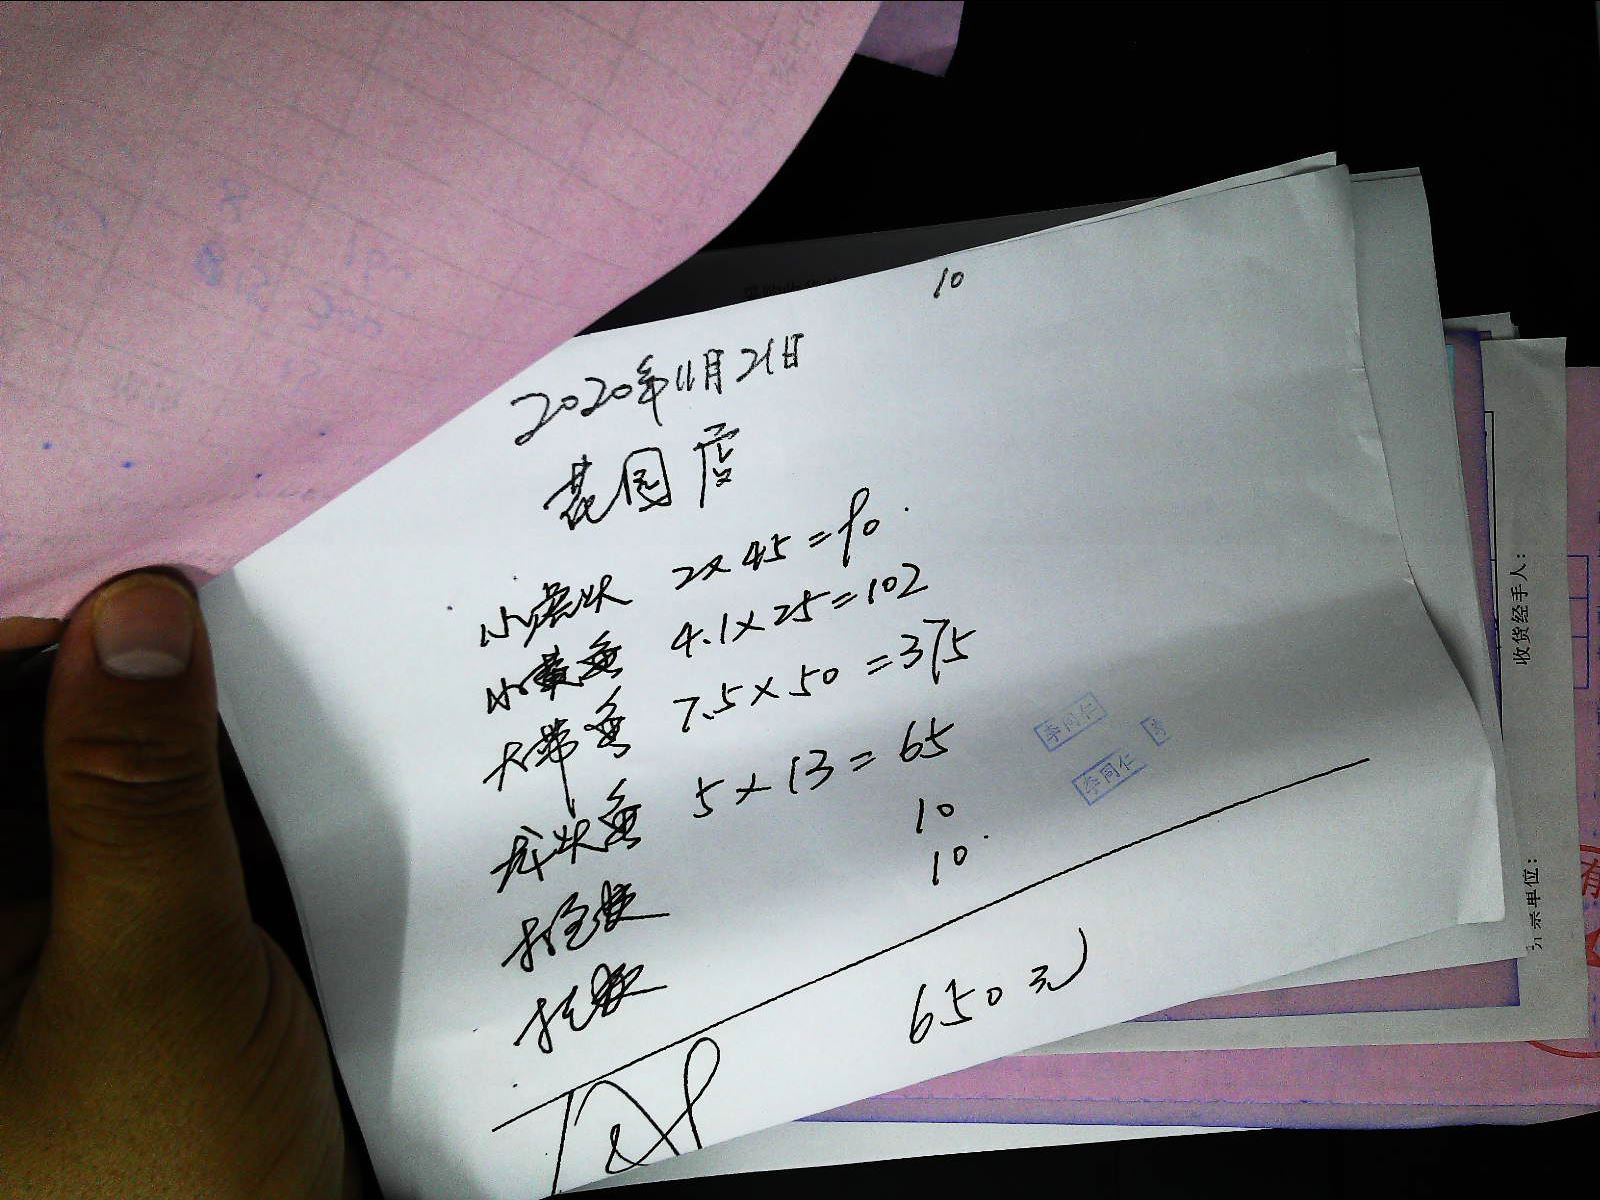 10
2020年11月21日
花园店
小虎头 2×45=90
小黄鱼 4.1×25=102
大带鱼 7.5×50=375
龙头鱼 5×13=65
10
10
650元
李同仁
李同仁
收货经手人：